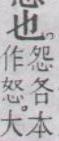 也
怨各本
作怒大